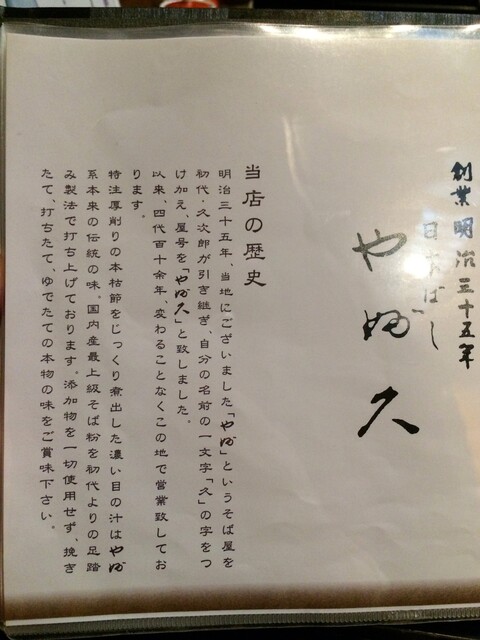 創業明治三十五年
日本ばし
やぶ久
当店の歴史
明治三十五年、当地にございました「やぶ」というそば屋を
初代・久次郎が引き継ぎ、自分の名前の一文字「久」の字をつ
け加え、屋号を「やぶ久」と致しました。
以来、四代百十余年、変わることなくこの地で営業致してお
ります。
特注厚削りの本枯節をじっくり煮出した濃い目の汁はやぶ
系本来の伝統の味。国内産最上級そば粉を初代よりの足踏
み製法で打ち上げております。添加物を一切使用せず、挽き
たて、打ちたて、ゆでたての本物の味をご賞味下さい。